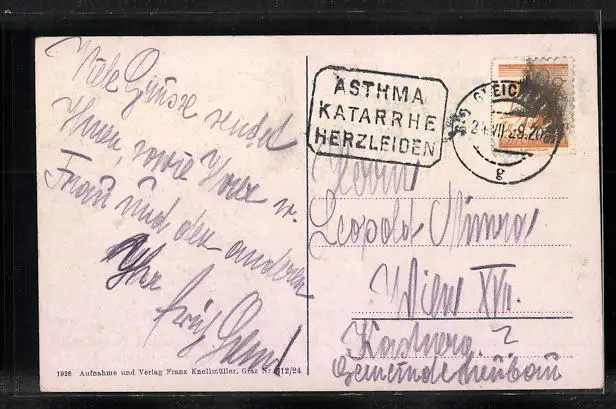 Viele Grüsse sendet
Ihnen, sowie Ihrer w.
Frau und den anderen
Ihr
Fritz
ASTHMA
KATARRHE
HERZLEIDEN
GLEICH
24.VII.29.20
g
Herrn
Leopold
Wien XVII.
Gemeindeneubau
1926 Aufnahme und Verlag Franz Knollmüller, Graz Nr. 612/24